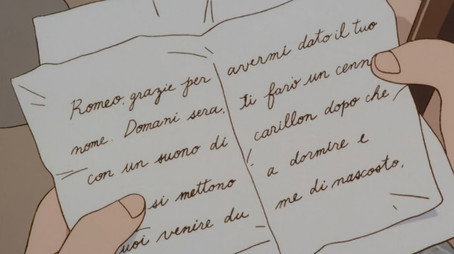 Romeo, grazie per avermi dato il tuo
nome. Domani sera, ti farò un cenn
con un suono di carillon dopo che
si mettono a dormire e
uoi venire du me di nascosto.